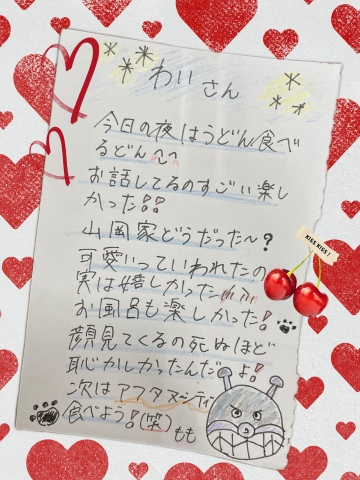 わいさん
今日の夜はうどん食べ
るどん^_^
お話してるのすごい楽し
かった!!
山岡家どうだった〜?
可愛いっていわれたの
実は嬉しかった
お風呂も楽しかった!
顔見てくるの死ぬほど
恥かしかったんだよ!
次はアフタヌンティ
食べよう!(笑)
もも
KISS KISS!